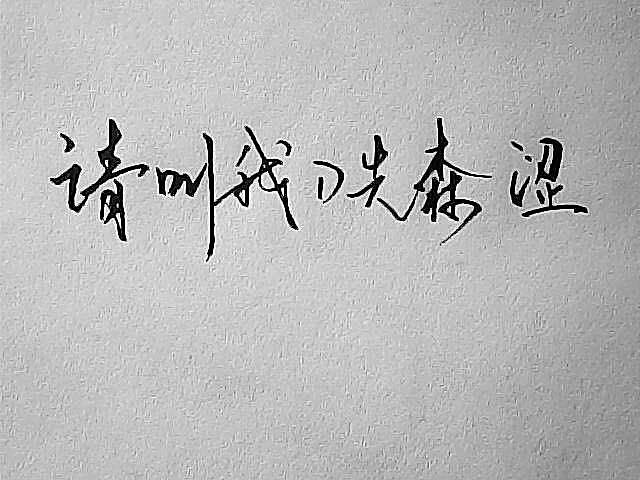 请叫我冼森涩